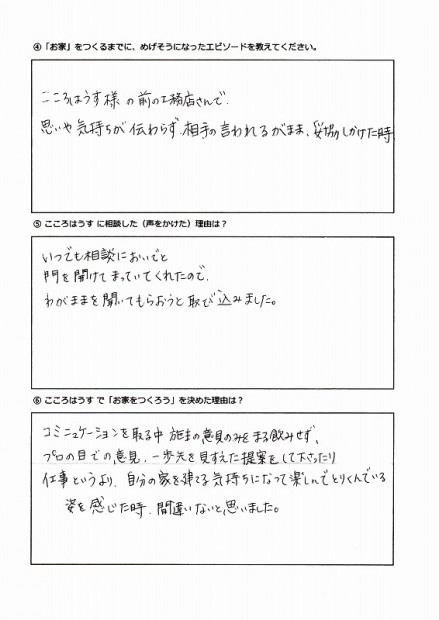 ④「お家」をつくるまでに、めげそうになったエピソードを教えてください。
こころはうす様の前の工務店さんで、
思いや気持ちが伝わらず、相手の言われるがまま、妥協しかけた時
⑤ こころはうす に相談した（声をかけた）理由は？
いつでも相談においでと
門を開けてまっていてくれたので、
わがままを聞いてもらおうと取び込みました。
⑥ こころはうす で「お家をつくろう」を決めた理由は？
コミニュケーションを取る中 施主の意見のみをまる飲みせず、
プロの目での意見、一歩先を見すえた提案をして下さったり
仕事というより、自分の家を建てる気持ちになって楽しんでとりくんでいる
姿を感じた時、間違いないと思いました。